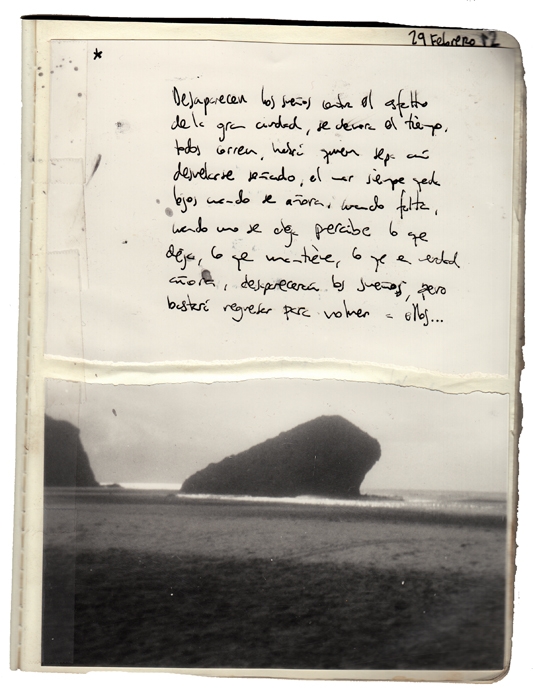 29 Febrero 12
*
Desaparecen los sueños contra el asfalto
de la gran ciudad, se devora el tiempo,
todos corren, habrá quien sepa aún
desvelarse soñando, el mar siempre queda
lejos cuando se añora, cuando falta,
cuando uno se aleja percibe lo que
deja, lo que mantiene, lo que en verdad
añora, desaparecerán los sueños, pero
bastará regresar para volver a ellos...